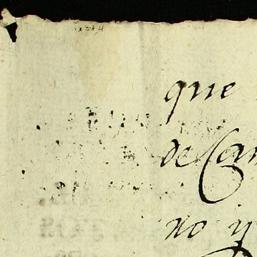 que
de Cam
no y